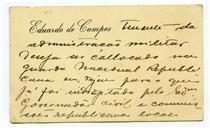 Eduardo de Campos
tenente da
administração militar
deseja ser collocado na
guarda Nacional Republi
cana em, para o que
já foi indicado pelo Sr.
Governador civil e commis
sões republicanas locaes